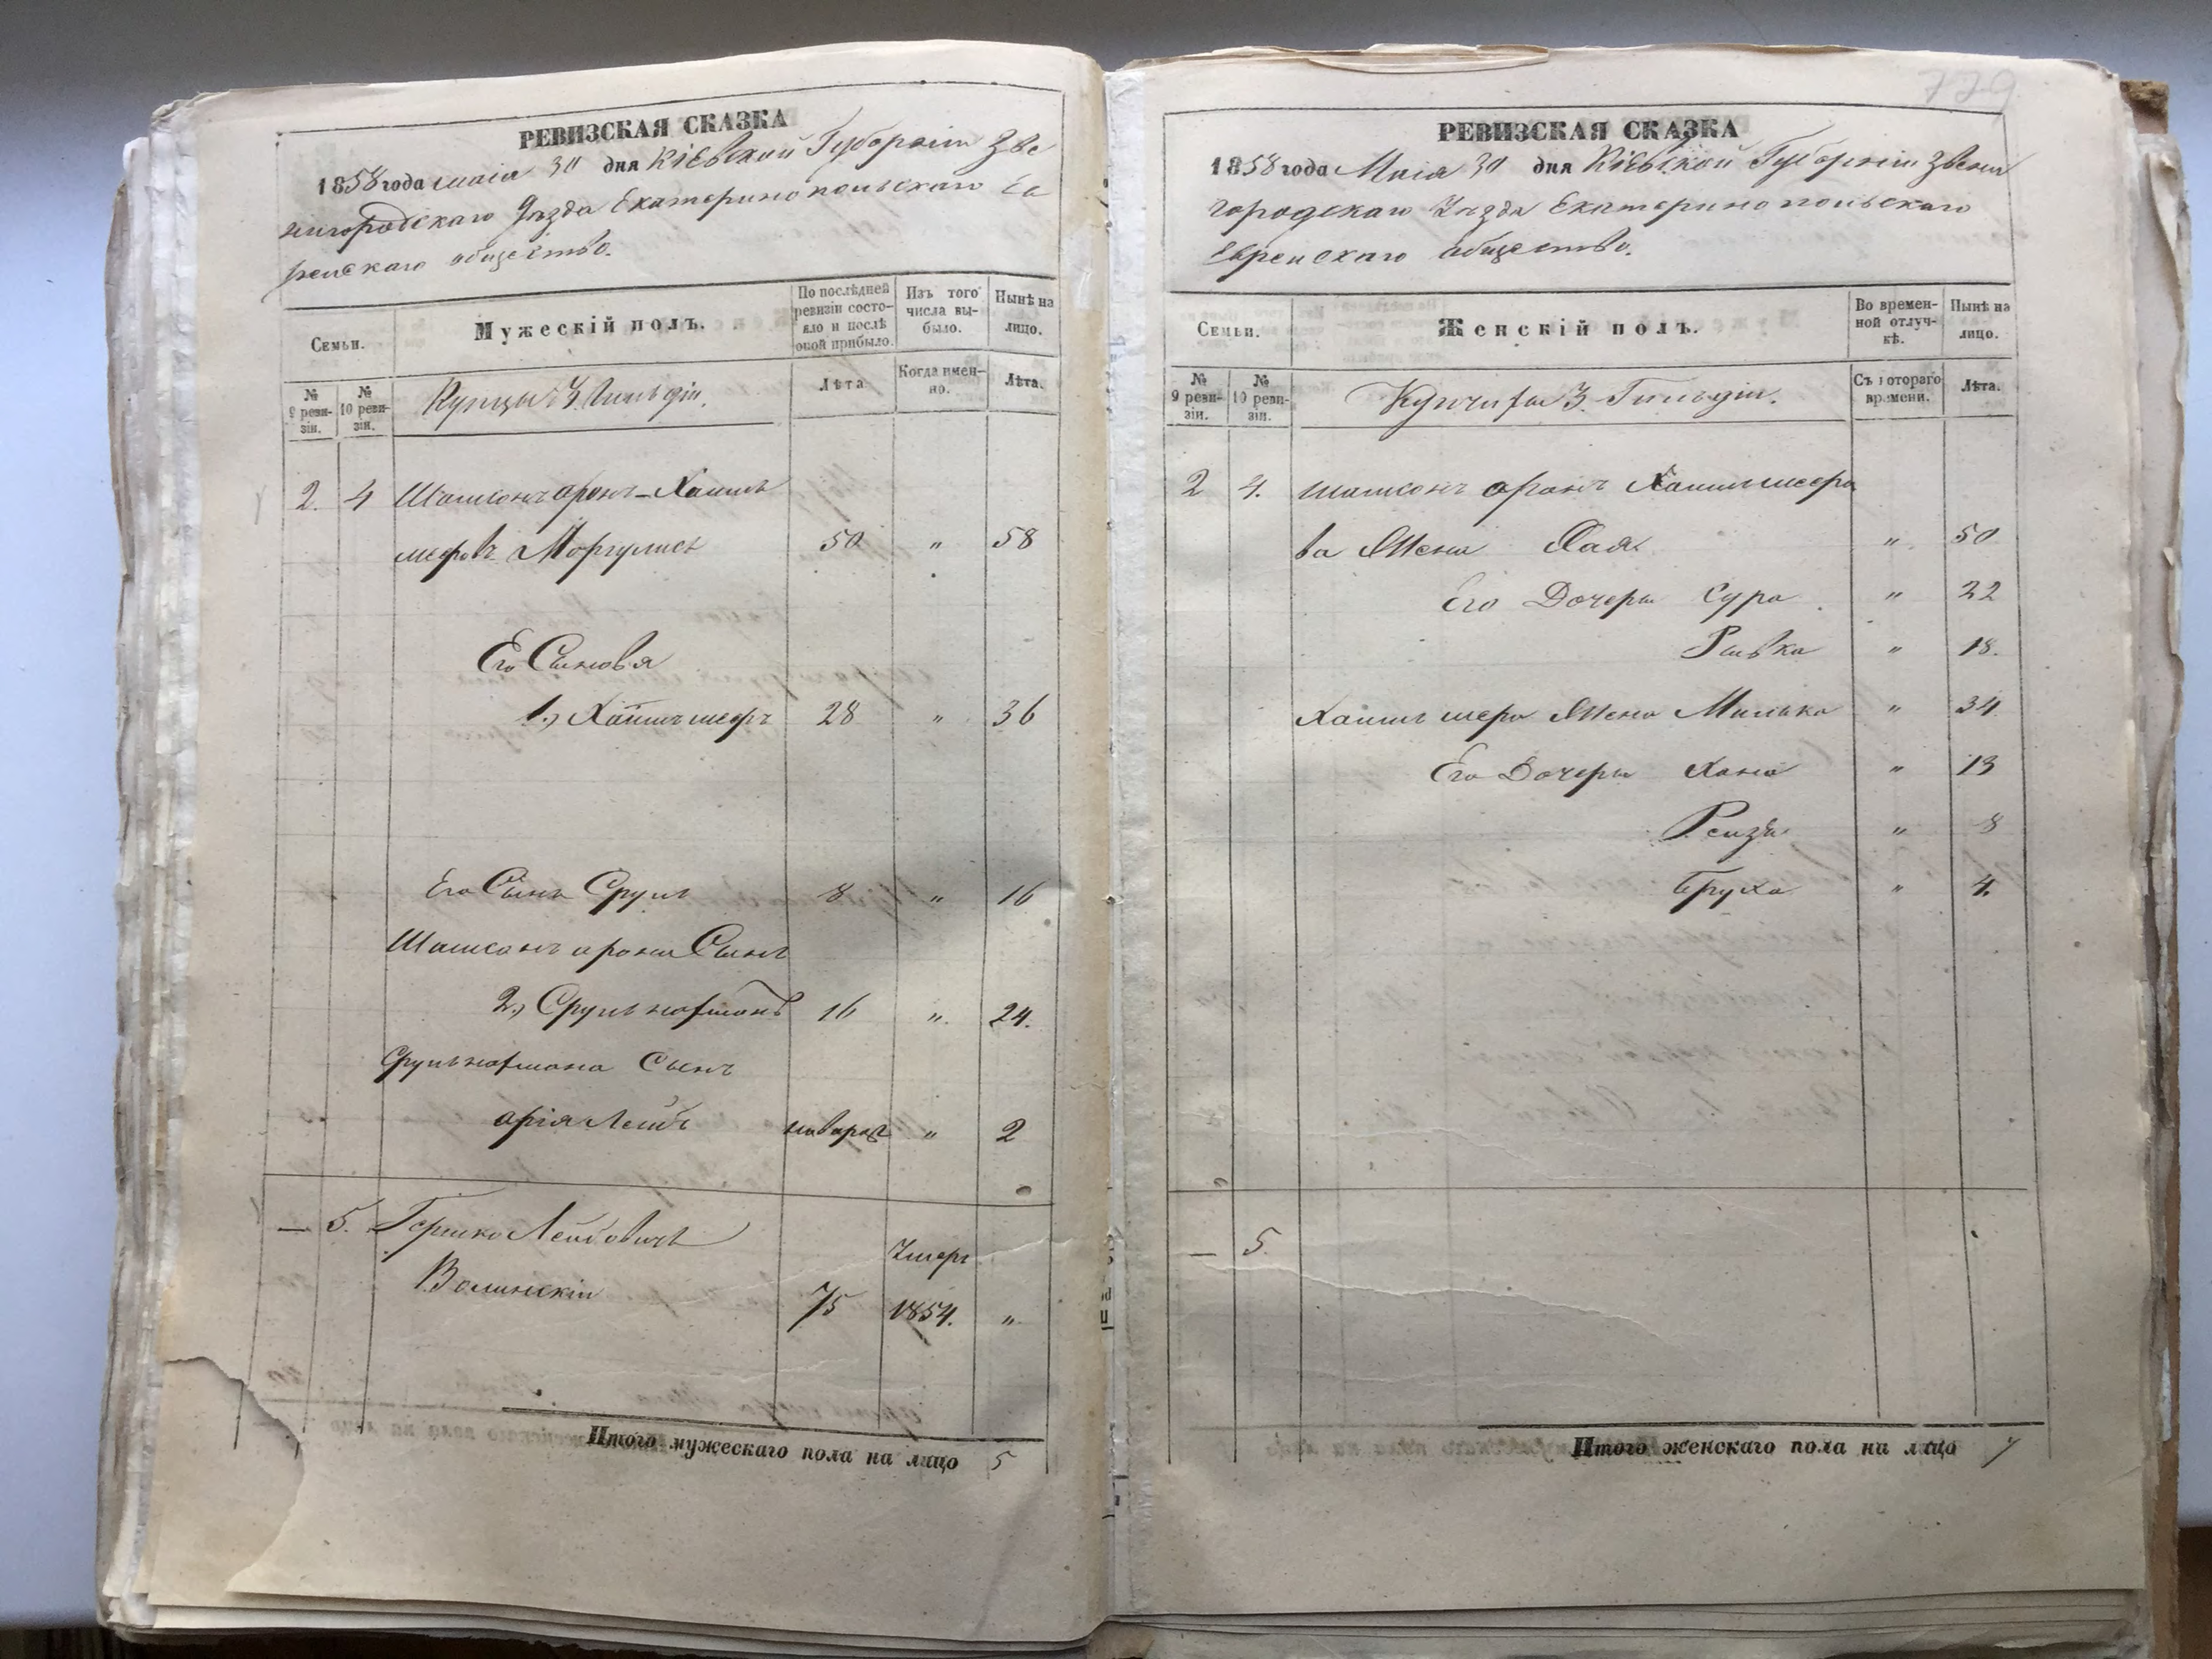 РЕВИЗСКАЯ СКАЗКА
1858 года маія 30 дня Кіевской Губерніи Зве
нигородскаго Уѣзда Екатеринопольскаго Ев
рейскаго общества.
Семьи.
Мужескій полъ.
По послѣдней ревизіи состояло и послѣ оной прибыло.
Изъ того числа выбыло.
Нынѣ на лицо.
№ 9 ревизіи.
№ 10 ревизіи.
Купцы 3 Гильдіи.
Лѣта
Когда именно.
Лѣта.
2. 4 Шамсонъ аронъ-Хаимъ
меровъ Моргулисъ 50 " 58
Его Сыновья
1.) Хаимъ меръ 28 " 36
Его Сынъ Сруль 8 " 16
Шамсонъ арона Сынъ
2.) Срульнафтанъ 16 " 24.
Срульнафтана Сынъ
арія Лейбъ " 2
— 5. Гершко Лейбовичъ
Умеръ
Волинскій 75 1854. "
Итого мужескаго пола на лицо 5
РЕВИЗСКАЯ СКАЗКА
1858 года Маія 30 дня Кіевской Губерніи Звени
городскаго Уѣзда Екатеринопольскаго
Еврейскаго общества.
Семьи.
Женскій полъ.
Во временной отлучкѣ.
Нынѣ на лицо.
№ 9 ревизіи.
№ 10 ревизіи.
Купчихи 3. Гильдіи.
Съ котораго времени.
Лѣта.
2 4. Шамсонъ аронъ Хаимъ мера
ва Жена Хая " 50
Его Дочери Сура " 22
Ривка " 18.
Хаимъ мера Жена Милька " 34
Его Дочери Хана " 13
Рейзя " 8
Бруха " 4.
— 5.
Итого женскаго пола на лицо 7